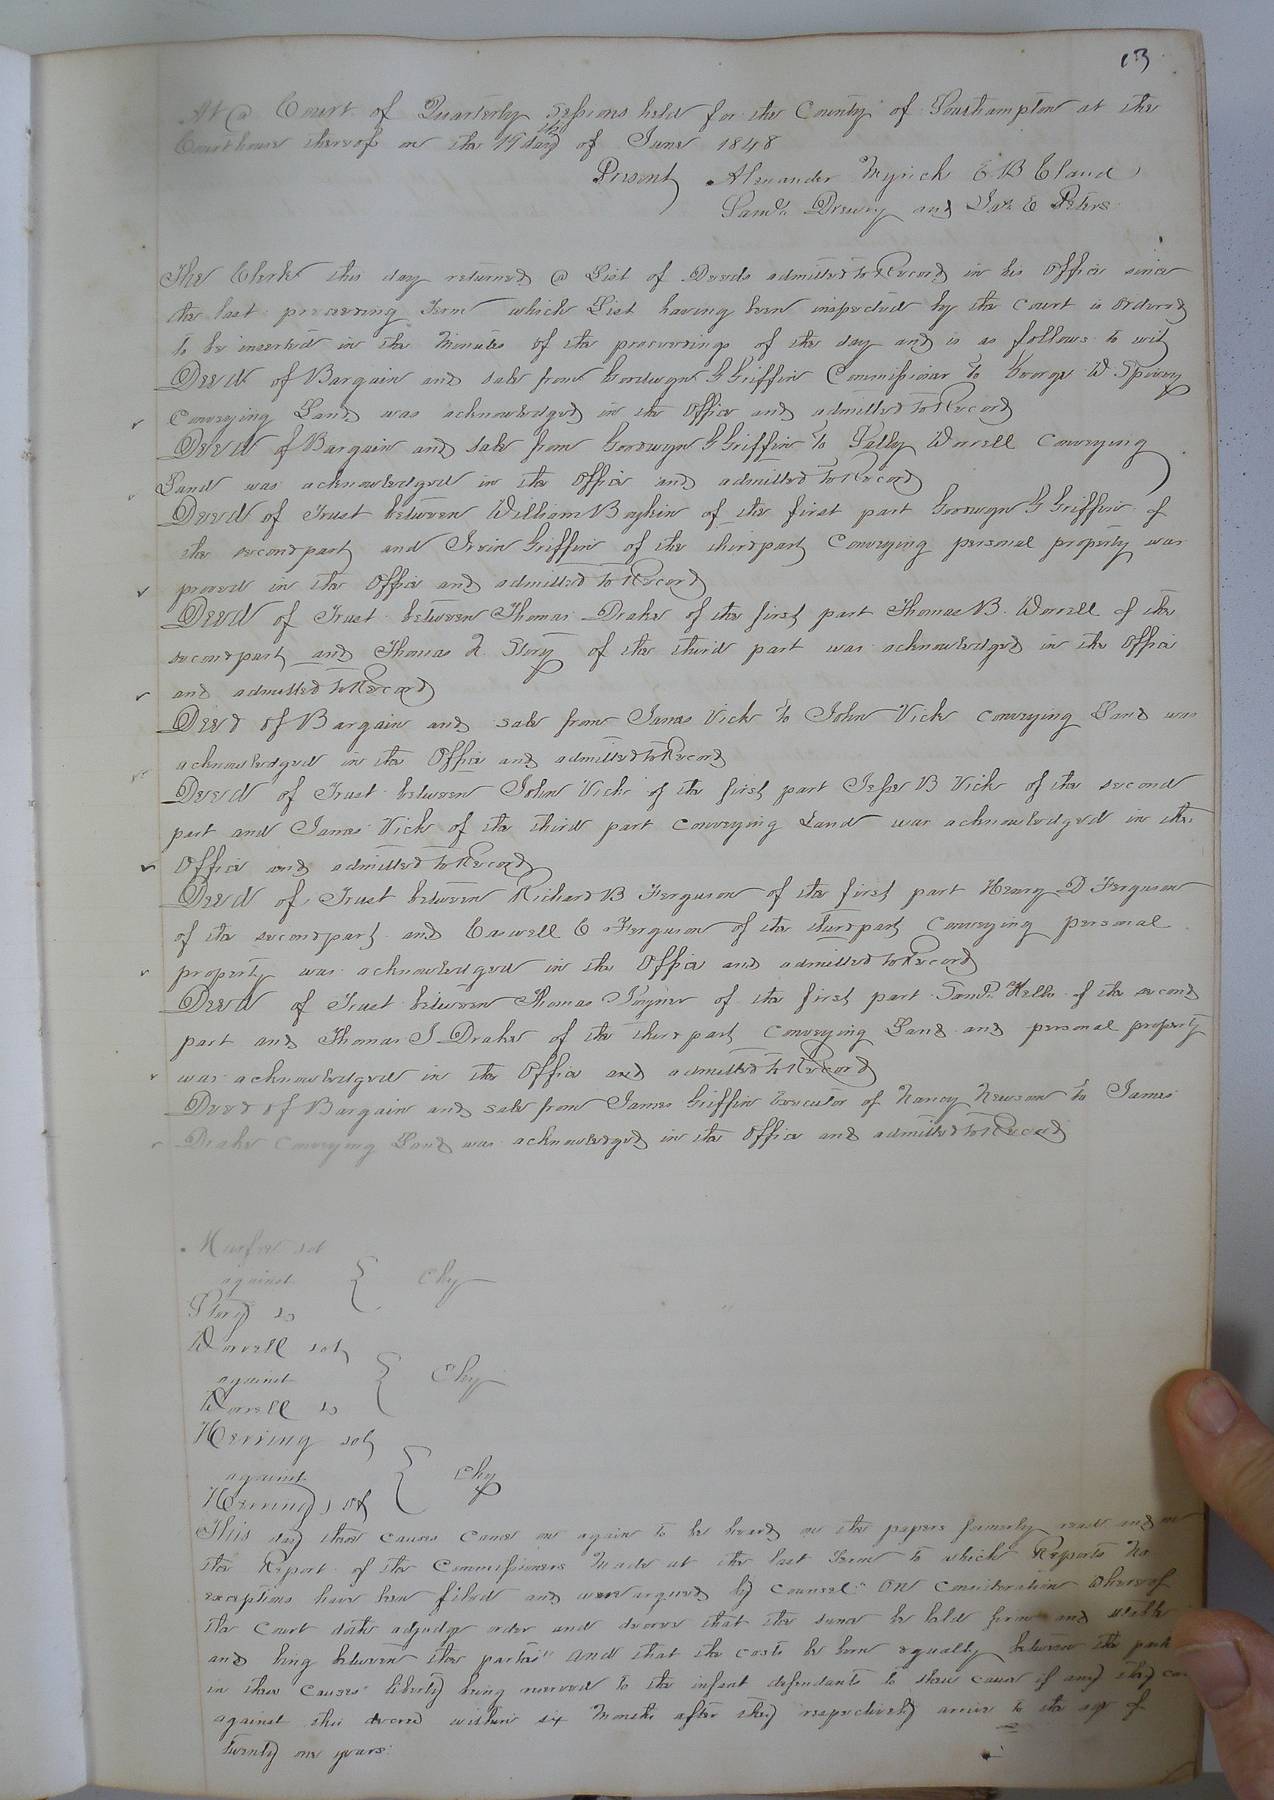 13
At a Court of Quarterly Sessions held for the County of Southampton at the
Courthouse thereof on the 19th day of June 1848
Present Alexander Myrick E B Claud
Saml. Drewry and Jas. E Peters
The Clerk this day returned a List of Deeds admitted to Record in his Office since
the last preceeding Term which List having been inspected by the Court is ordered
to be inserted in the Minutes of the proceedings of the day and is as follows to wit
Deed of Bargain and sale from Goodwyn G Griffin Commissioner to George W Spivey
Conveying Land was acknowledged in the Office and admitted to Record
Deed of Bargain and sale from Goodwyn G Griffin to Salley Worrell Conveying
Land was acknowledged in the Office and admitted to Record
Deed of Trust between William Boykin of the first part Goodwyn G Griffin of
the second part and Irvin Griffin of the third part Conveying personal property was
proved in the Office and admitted to Record
Deed of Trust between Thomas Drake of the first part Thomas B. Worrell of the
second part and Thomas Story of the third part was acknowledged in the Office
and admitted to Record
Deed of Bargain and sale from James Vick to John Vick conveying Land was
acknowledged in the Office and admitted to Record
Deed of Trust between John Vick of the first part Jesse B Vick of the second
part and James Vick of the third part Conveying Land was acknowledged in the
Office and admitted to Record
Deed of Trust between Richard B Ferguson of the first part Henry D Ferguson
of the second part and Caswell C Ferguson of the third part Conveying personal
property was acknowledged in the Office and admitted to Record
Deed of Trust between Thomas Joyner of the first part Saml. Kello of the second
part and Thomas J Drake of the third part Conveying Land and personal property
was acknowledged in the Office and admitted to Record
Deed of Bargain and sale from James Griffin Executor of Nancy Newsom to James
Drake Conveying Land was acknowledged in the Office and admitted to Record
against Chy
Story
Worrell
against Chy
Worrell
Herring
against Chy
Herring
This day these causes came on again to be heard on the papers formerly read and on
the Report of the Commissioners made at the last Term to which Reports No
exceptions have been filed and were argued by Counsel On Consideration whereof
the Court doth adjudge order and decree that the same be held firm and stable
and bing between the parties and that the costs be born equally between the
in these causes liberty being reserved to the infant defendants to shew cause if any they can
against this decree within six months after they respectively arrive to the age of
twenty one years